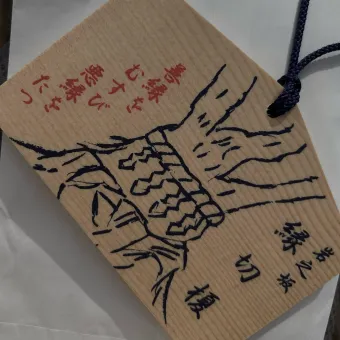 善縁を
むすび
悪縁を
たつ
岩之坂
縁切榎